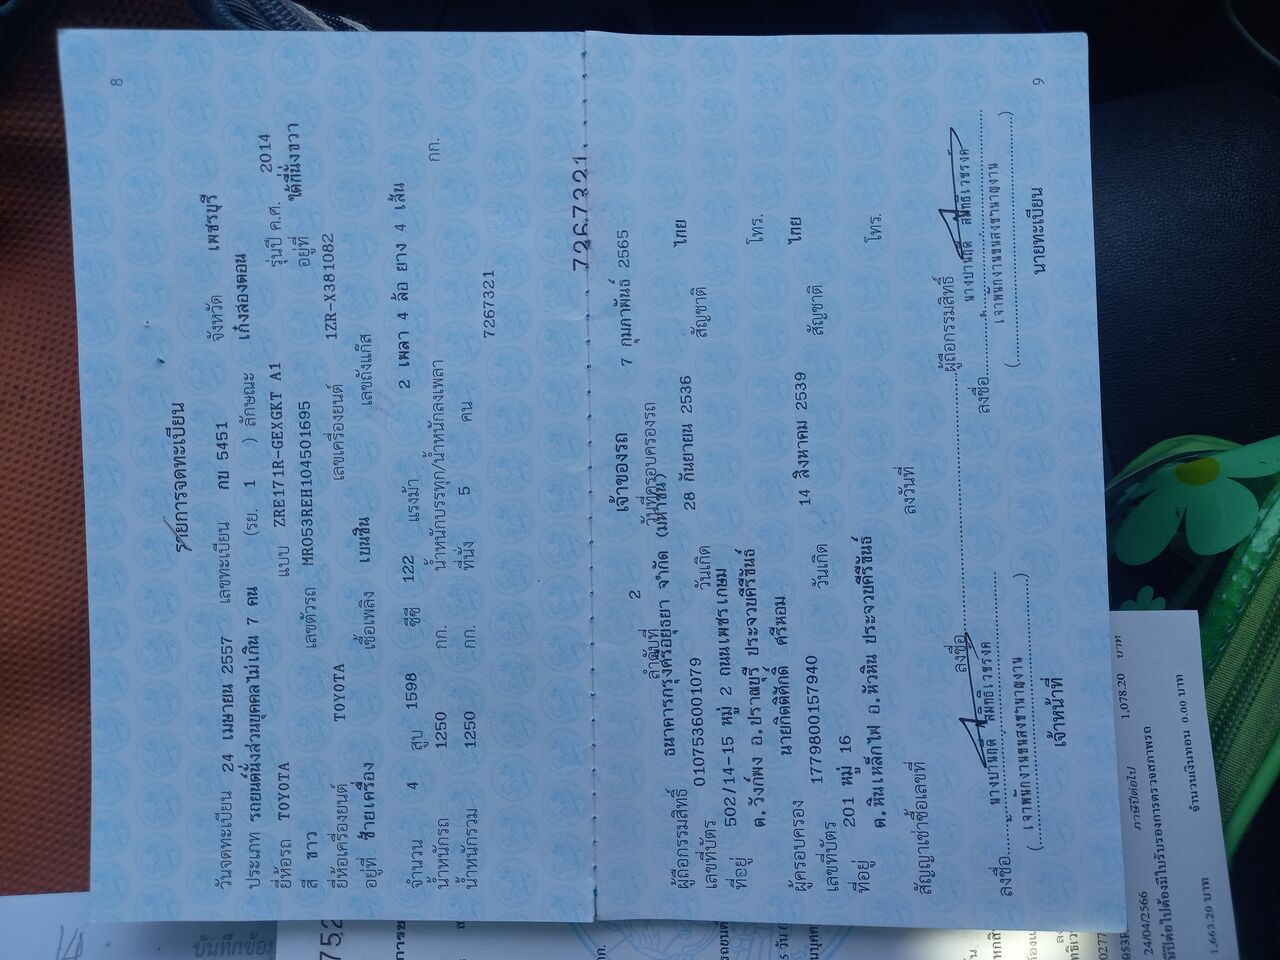 8
รายการจดทะเบียน
วันจดทะเบียน 24 เมษายน 2557 เลขทะเบียน กข 5451 จังหวัด เพชรบุรี
ประเภท รถยนต์นั่งส่วนบุคคลไม่เกิน 7 คน (รย. 1 ) ลักษณะ เก๋งสองตอน
ยี่ห้อรถ TOYOTA แบบ ZRE171R-GEXGKT A1 รุ่นปี ค.ศ. 2014
สี ขาว เลขตัวรถ MR053REH104501695 อยู่ที่ ใต้ที่นั่งขวา
ยี่ห้อเครื่องยนต์ TOYOTA เลขเครื่องยนต์ 1ZR-X381082
อยู่ที่ ซ้ายเครื่อง เชื้อเพลิง เบนซิน เลขถังแก๊ส
จำนวน 4 สูบ 1598 ซีซี 122 แรงม้า 2 เพลา 4 ล้อ ยาง 4 เส้น
น้ำหนักรถ 1250 กก. น้ำหนักบรรทุก/น้ำหนักลงเพลา กก.
น้ำหนักรวม 1250 กก. ที่นั่ง 5 คน
7267321
7267321
เจ้าของรถ
ลำดับที่ 2 วันที่ครอบครองรถ 7 กุมภาพันธ์ 2565
ผู้ถือกรรมสิทธิ์ ธนาคารกรุงศรีอยุธยา จำกัด (มหาชน)
เลขที่บัตร 0107536001079 วันเกิด 28 กันยายน 2536 สัญชาติ ไทย
ที่อยู่ 502/14-15 หมู่ 2 ถนนเพชรเกษม
ต.วังก์พง อ.ปราณบุรี ประจวบคีรีขันธ์ โทร.
ผู้ครอบครอง นายกิตติศักดิ์ ศรีหอม
เลขที่บัตร 1779800157940 วันเกิด 14 สิงหาคม 2539 สัญชาติ ไทย
ที่อยู่ 201 หมู่ 16
ต.หินเหล็กไฟ อ.หัวหิน ประจวบคีรีขันธ์ โทร.
สัญญาเช่าซื้อเลขที่ ลงวันที่
ลงชื่อ ผู้ถือกรรมสิทธิ์
ลงชื่อ ลงชื่อ
เจ้าพนักงานขนส่งชำนาญงาน เจ้าพนักงานขนส่งชำนาญงาน
เจ้าหน้าที่ นายทะเบียน
9
บันทึกของ
24/04/2566 ภาษีปีต่อไป 1,078.20 บาท
ปีต่อไปต้องมีใบรับรองการตรวจสภาพรถ
1,663.20 บาท จำนวนเงินทอน 0.00 บาท